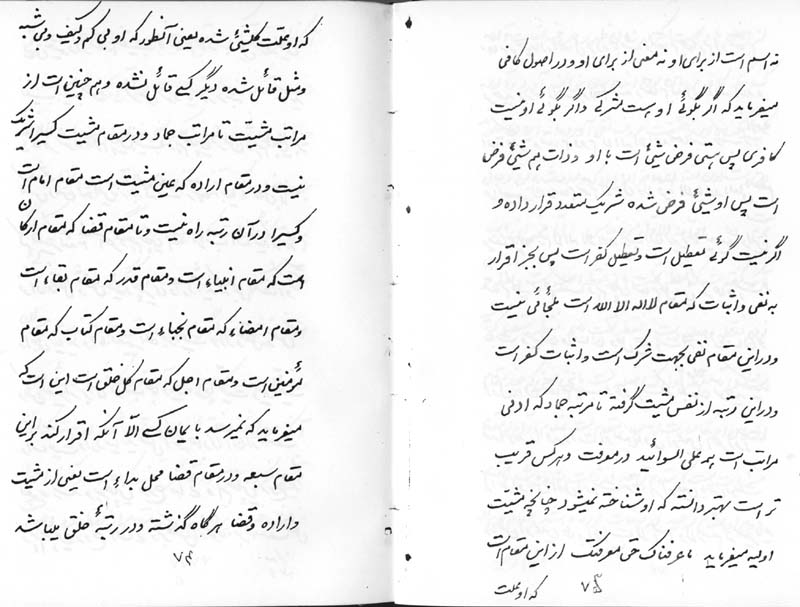 نه اسم است از برای او و نه معنی از برای او و در اصول کافی
میفرماید که اگر بگوئی او هست مشرکی و اگر بگوئی او نیست
کافری پس هستی فرض شیئ است با او و ذات هم شیئ فرض
است پس او شیئ فرض شده شریک متعدد قرار داده و
اگر نیست گوئی تعطیل است و تعطیل کفر است پس بجز اقرار
به نفی و اثبات که مقام لااله الا الله است ملجائی نیست
و در این مقام نفی بجهت شرک است و اثبات کفر است
و در این رتبه از نفس مشیت گرفته تا مرتبه جماد که ادنی
مراتب است بر علی السوائید در معرفت و هر کس قریب
تر است بهتر دانسته که او شناخته نمیشود چنانچه مشیت
اولیه میفرماید ما عرفناک حق معرفتک از این مقام است
که او بعلت
۷۳
که او بعلت کلشیئ شده یعنی آنطور که او بی کم و کیف و بی شبه
و مثل قائل شده دیگر کسی قائل نشده و هم چنین است از
مراتب مشیت تا مراتب جماد و در مقام مشیت کسیرا شریک
نیست و در مقام اراده که عین مشیت است مقام امام است
و کسیرا در آن رتبه راه نیست و تا مقام قضا که مقام ارکان
است که مقام انبیاء است و مقام قدر که مقام نقباء است
و مقام امضاء که مقام نجباء است و مقام کتاب که مقام
مؤمنین است و مقام اجل که مقام کل خلق است این است که
میفرماید که نمیرسد بایمان کسی الا آنکه اقرار کند براین
مقام سبعه و در مقام قضا محل بداء است یعنی از مشیت
و اراده و قضا هرگاه گذشته و در رتبهٔ خلق یباشد
۷۴